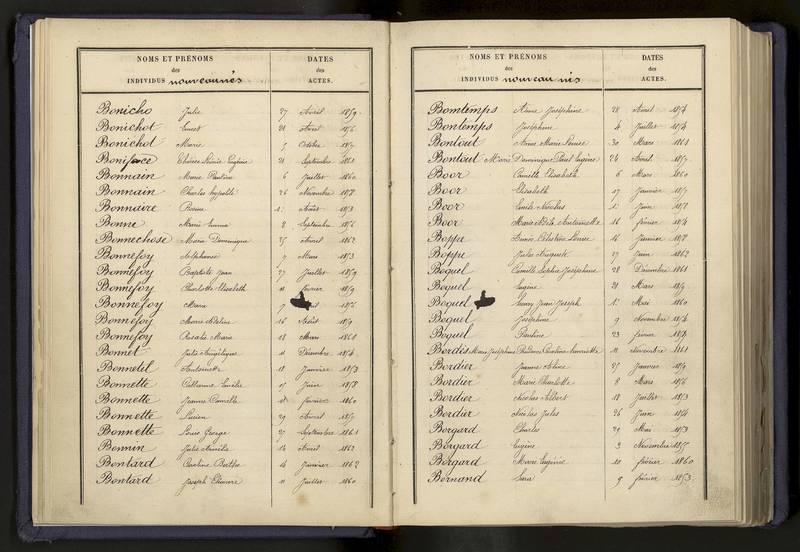 NOMS ET PRÉNOMS
des
INDIVIDUS nouveaunés
DATES
des
ACTES.
Bonicho Julie 27 Avril 1859
Bonichot Ernest 21 Avril 1856
Bonichot Marie 5 Octobre 1857
Boniface Eugénie 21 Septembre 1861
Bonnain Marie Pauline 6 Juillet 1860
Bonnain Charles hyppolite 26 Novembre 1858
Bonnaire 1er Août 1853
Bonne Marie Emma 8 Septembre 1856
Bonnechose Marie Dominique 25 Avril 1862
Bonnefoy Delphine 7 Mars 1853
Bonnefoy Baptiste Jean 27 Juillet 1859
Bonnefoy Charlotte Elisabeth 11 février 1859
Bonnefoy Marie 9
Bonnefoy Marie Adeline 16 Août 1859
Bonnefoy Rosalie Marie 18 Mars 1860
Bonnet Julie Angélique 11 Décembre 1854
Bonnetel Antoinette 18 Janvier 1853
Bonnette Catherine Emélie 15 Juin 1858
Bonnette Jeanne Camille février 1860
Bonnette Lucien 29 Avril 1857
Bonnette Louis George 27 Septembre 1861
Bonnin Julie 14 Avril 1862
Bontard Caroline Berthe 14 Janvier 1862
Bontard Joseph 11 Juillet 1860
NOMS ET PRÉNOMS
des
INDIVIDUS nouveau nés
DATES
des
ACTES.
Bomtemps Anne Joséphine 28 Avril 1854
Bontemps Joséphine 4 Juillet 1854
Bontout Anne Marie Louise 30 Mars 1861
Bontout Marie Dominique Paul Eugène 24 Avril 1857
Boor Camille Elisabeth 6 Mars 1860
Boor Elisabeth 17 Janvier 1857
Boor Emile Nicolas 1er Juin 1858
Boor Marie Adèle Antoinette 16 février 1854
Boppe Célestine Louise 16 Janvier 1858
Boppe Jules Auguste 27 Juin 1862
Boquel Camille Sophie Joséphine 28 Décembre 1861
Boquel Eugène 21 Mars 1859
Boquel Jean Joseph 1er Mai 1860
Boquel Joséphine 9 Novembre 1854
Boquel Pauline 23 février 1854
Bordès Marie Joséphine Caroline henriette 11 Novembre 1861
Bordier Jeanne Aline 27 Janvier 1859
Bordier Marie Charlotte 8 Mars 1856
Bordier Nicolas Albert 18 Juillet 1853
Bordier Nicolas Jules 26 Juin 1854
Borgard Charles 29 Mai 1853
Borgard Eugène 3 Novembre 1855
Borgard Marie Eugénie 10 février 1860
Bornand Sara 9 février 1853